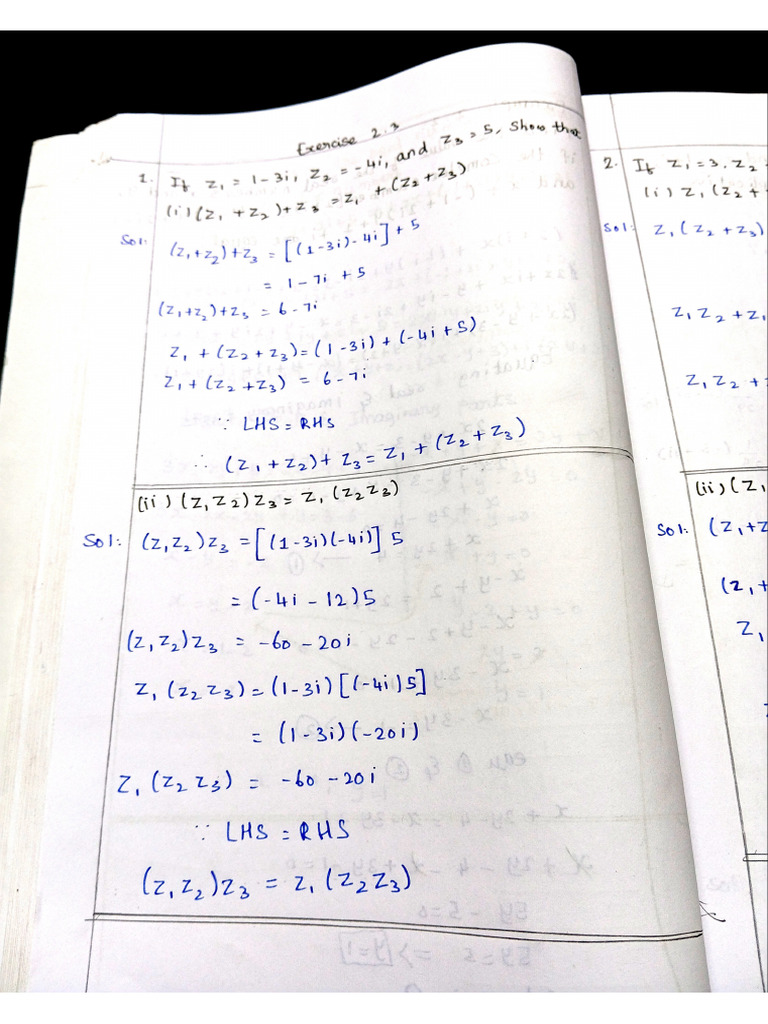 Exercise 2.3
1. If z₁ = 1-3i, z₂ = -4i, and z₃ = 5, show that
(i) (z₁ + z₂) + z₃ = z₁ + (z₂ + z₃)
Sol: (z₁+z₂)+z₃ = [(1-3i)-4i] + 5
= 1 - 7i + 5
(z₁+z₂)+z₃ = 6-7i
z₁ + (z₂ + z₃) = (1-3i) + (-4i + 5)
z₁ + (z₂ + z₃) = 6-7i
∵ LHS = RHS
∴ (z₁ + z₂) + z₃ = z₁ + (z₂ + z₃)
(ii) (z₁z₂)z₃ = z₁(z₂z₃)
Sol: (z₁z₂)z₃ = [(1-3i)(-4i)] 5
= (-4i - 12)5
(z₁z₂)z₃ = -60 - 20i
z₁(z₂z₃) = (1-3i)[(-4i)5]
= (1-3i)(-20i)
z₁(z₂z₃) = -60 - 20i
∵ LHS = RHS
(z₁z₂)z₃ = z₁(z₂z₃)
2. If z₁ = 3, z₂
(i) z₁(z₂ +
Sol: z₁(z₂+z₃)
z₁z₂ + z₁
z₁z₂ +
(ii) (z₁
Sol: (z₁+z
(z₁+
z₁